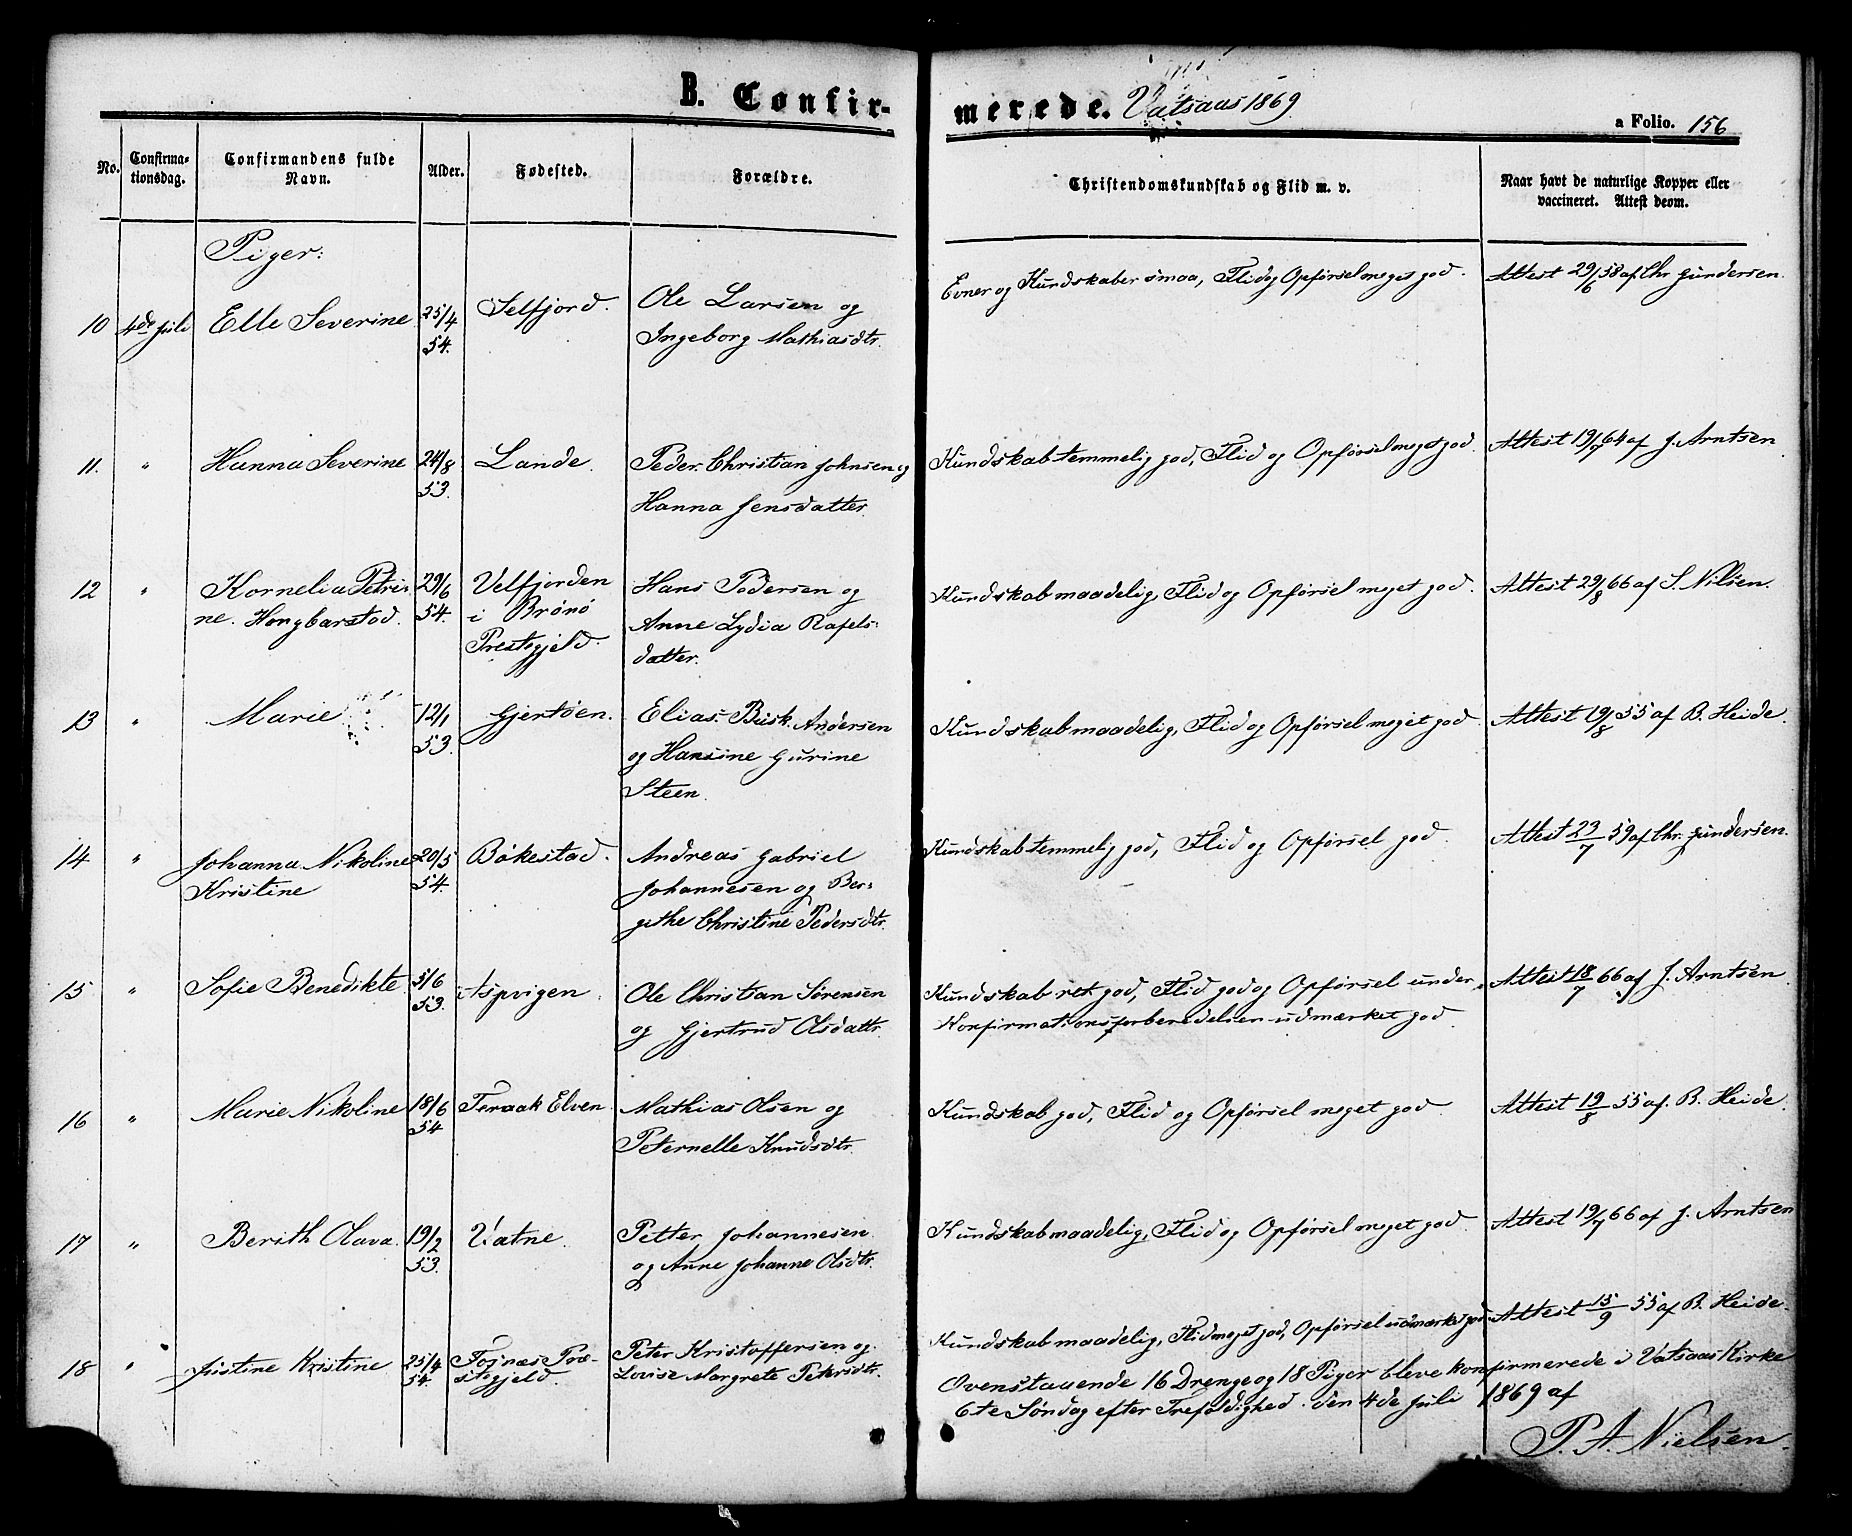 B. Confirmerede. Vatsaas 1869
a Folio. 156
No.
Confirma-
tionsdag.
Confirmandens fulde
Navn.
Alder.
Fødested.
Forældre.
Christendomskundskab og Flid m. v.
Naar havt de naturlige Kopper eller
vaccineret. Attest derom.
Piger:
10 4de Juli Elle Severine 25/4 54. Selfjord. Ole Larsen og
Ingeborg Mathiasdtr.
Evner og Kundskaber smaa, Flid og Opførsel meget god.
Attest 29/6 58 af Chr Gundersen.
11. " Hanna Severine 24/8 53. Lande. Peder Christian Johnsen og
Hanna Jensdatter.
Kundskab temmelig god, Flid og Opførsel meget god.
Attest 19/7 64 af J. Arntsen
12 " Kornelia Petri-
ne. Hongbarstad. 29/6 54. Velfjorden
i Brönö
Prestegjeld.
Hans Pedersen og
Anne Lydia Rafels-
datter.
Kundskab maadelig, Flid og Opførsel meget god.
Attest 29/8 66 af S. Nilsen.
13 " Marie 12/1 53. Gjertøen. Elias Beisk. Andersen
og Hansine Gurine
Steen.
Kundskab maadelig, Flid og Opførsel meget god
Attest 19/8 55 af B. Heide.
14 " Johanna Nikoline
Kristine 20/5 54. Bökestad. Andreas Gabriel
Johannesen og Ber-
githe Christine Pedersdtr.
Kundskab temmelig god, Flid og Opførsel god.
Attest 23/7 59 af Chr. Gundersen.
15 " Sofie Benedikte 5/6 53. Aspvigen. Ole Christian Sørensen
og Gjertrud Olsdattr.
Kundskab ret god, Flid god og Opførsel under
Konfirmationsforberedelsen udmærket god.
Attest 18/7 66 af J. Arntsen
16 " Marie Nikoline 18/6 54 Teraak Elven Mathias Olsen og
Peternelle Knudsdtr.
Kundskab god, Flid og Opførsel meget god.
Attest 19/8 55 af. B. Heide.
17 " Berith Olava. 19/2 53. Vatne. Petter Johannesen
og Anne Johanne Olsdtr.
Kundskab maadelig, Flid og Opførsel meget god.
Attest 19/7 66 af J. Arntsen
18 " Justine Kristine 25/4 54. Fosnæs Præ-
stegjeld. Peter Kristoffersen og
Lovise Margrete Petersdtr.
Kundskab maadelig, Flid meget god, Opførsel udmærket god
Attest 15/9 55 af B. Heide.
Ovenstaaende 16 Drenge og 18 Piger bleve konfirmerede i Vatsaas Kirke
6te Søndag efter Trefoldighed. den 4de Juli 1869 af
P. A. Nielsen.